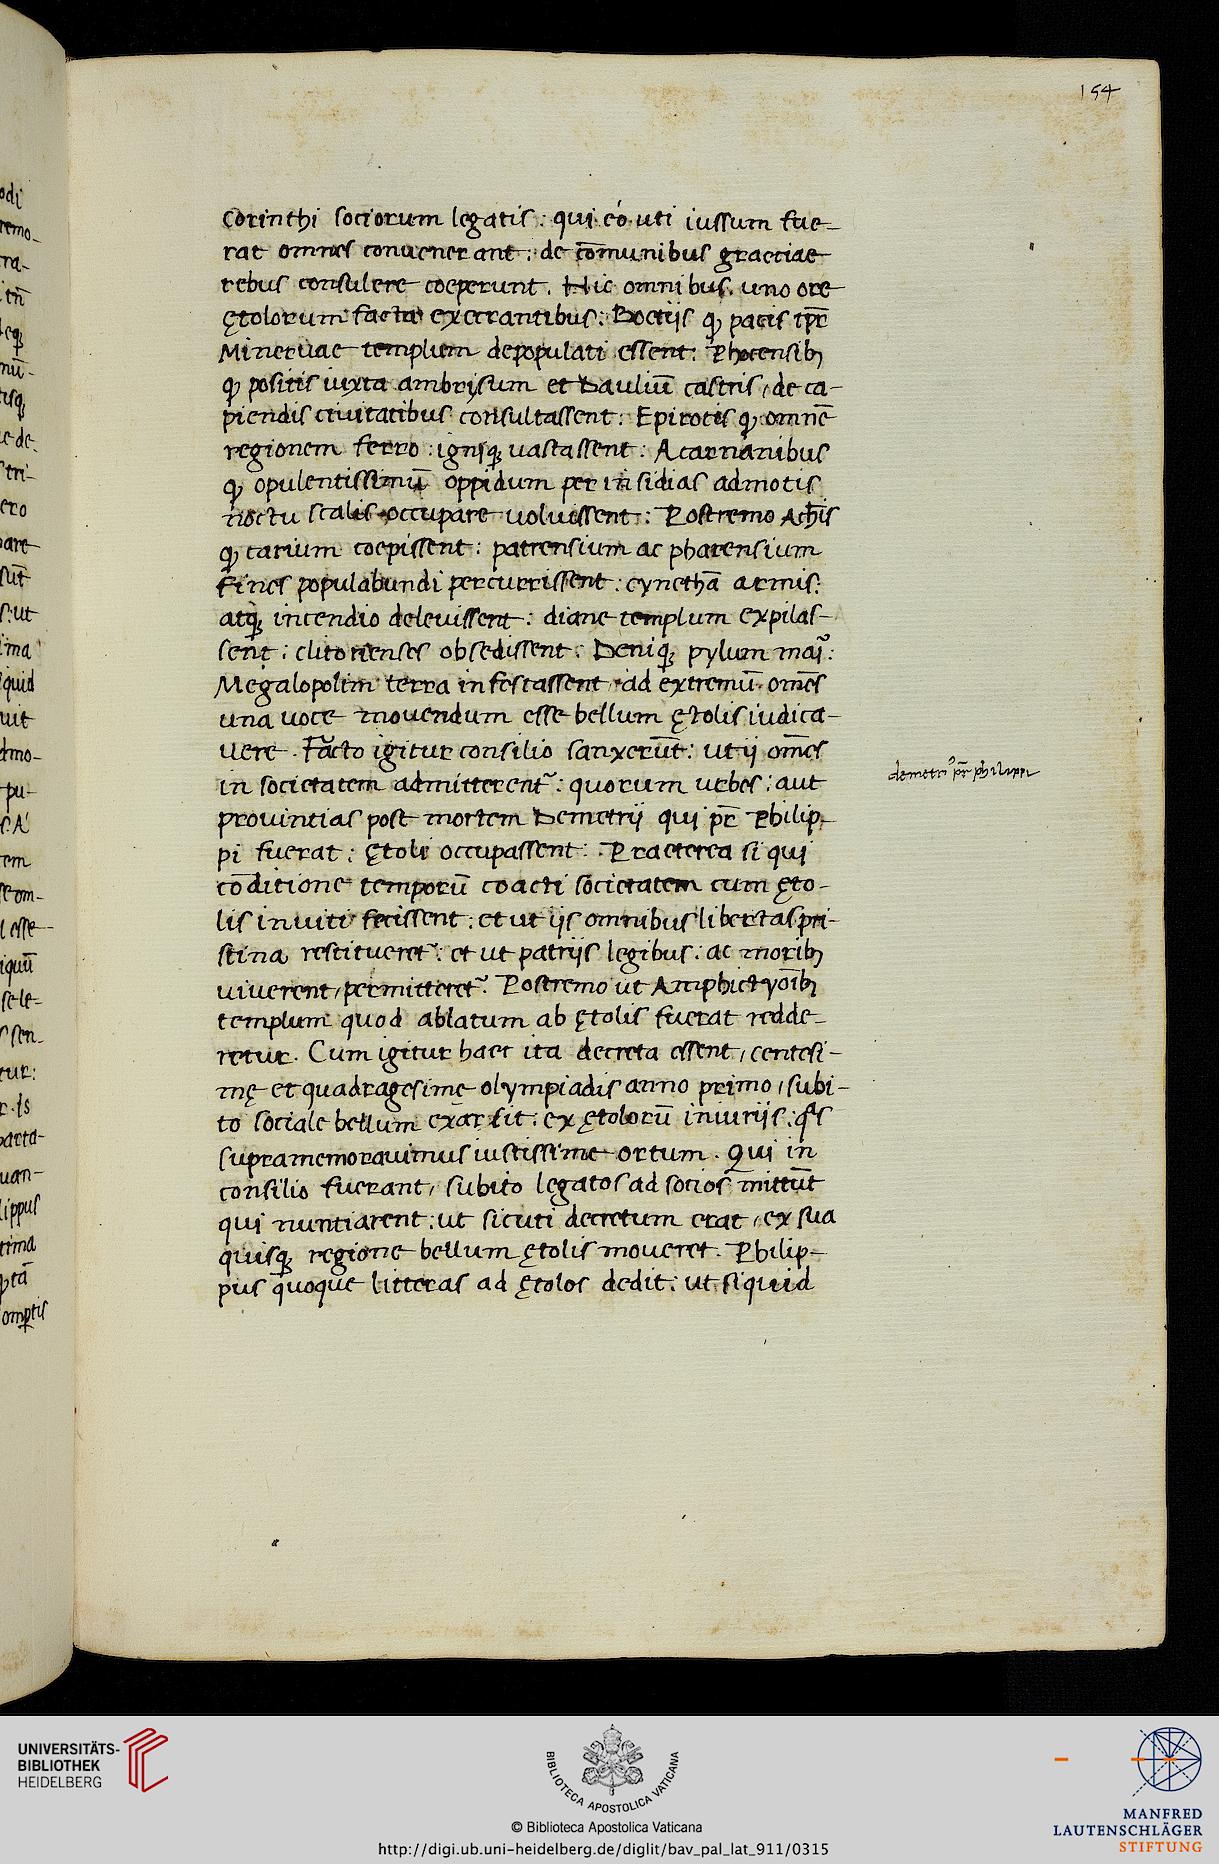 154
Corinthi sociorum legatis: qui eó uti iussum fue-
rat omnes convenerant: de cōmunibus graeciae
rebus consulere coeperunt. Hic omnibus uno ore
ętolorum facta execrantibus: Boetijs ꝙ pacis tp̄r
Minervae templum depopulati essent: Phocensibꝫ
ꝙ positis iuxta ambrysum et Dauliū castris, de ca-
piendis civitatibus consultassent: Epirotis ꝙ omnē
regionem ferro: igniqꝫ vastassent: Acarnanibus
ꝙ opulentissimū oppidum per insidias admotis
noctu scalis occupare voluissent: Postremo Ach̄is
ꝙ tarium coepissent: patrensium ac pharensium
fines populabundi percurrissent: cynethā armis:
atqꝫ incendio delevissent: diane templum expilas-
sent: clitorienses obsedissent: Deniqꝫ pylum mai᷑:
Megalopolim terra infestassent, ad extremū om̄es
una voce movendum esse bellum ętolis iudica-
vere. Facto igitur consilio sanxerūt: ut ij om̄es
in societatem admitterent᷑: quorum urbes: aut
provintias post mortem Demetrij qui pr̄ Philip-
pi fuerat: ętoli occupassent: Praeterea si qui
cōditione temporū coacti societatem cum ęto-
lis inviti fecissent: et ut ijs omnibus libertas pri-
stina restitueret᷑: et ut patrijs legibus: ac moribꝫ
viverent, permitteret᷑. Postremo ut Amphictyoībꝫ
templum quod ablatum ab ętolis fuerat redde-
retur. Cum igitur haec ita decreta essent, centesi-
mę et quadragesime olympiadis anno primo, subi-
to sociale bellum exarsit: ex ętolorū iniurijs: q̄s
supramemoravimus iustissime ortum. Qui in
consilio fuerant, subito legatos ad socios mittūt
qui nuntiarent: ut sicuti decretum erat, ex sua
quisqꝫ regione bellum ętolis moveret. Philip-
pus quoque litteras ad ętolos dedit: ut siquid
demetrꝰ pr̄ philippi
UNIVERSITÄTS-
BIBLIOTHEK
HEIDELBERG
BIBLIOTECA APOSTOLICA VATICANA
© Biblioteca Apostolica Vaticana
http://digi.ub.uni-heidelberg.de/diglit/bav_pal_lat_911/0315
MANFRED
LAUTENSCHLÄGER
STIFTUNG